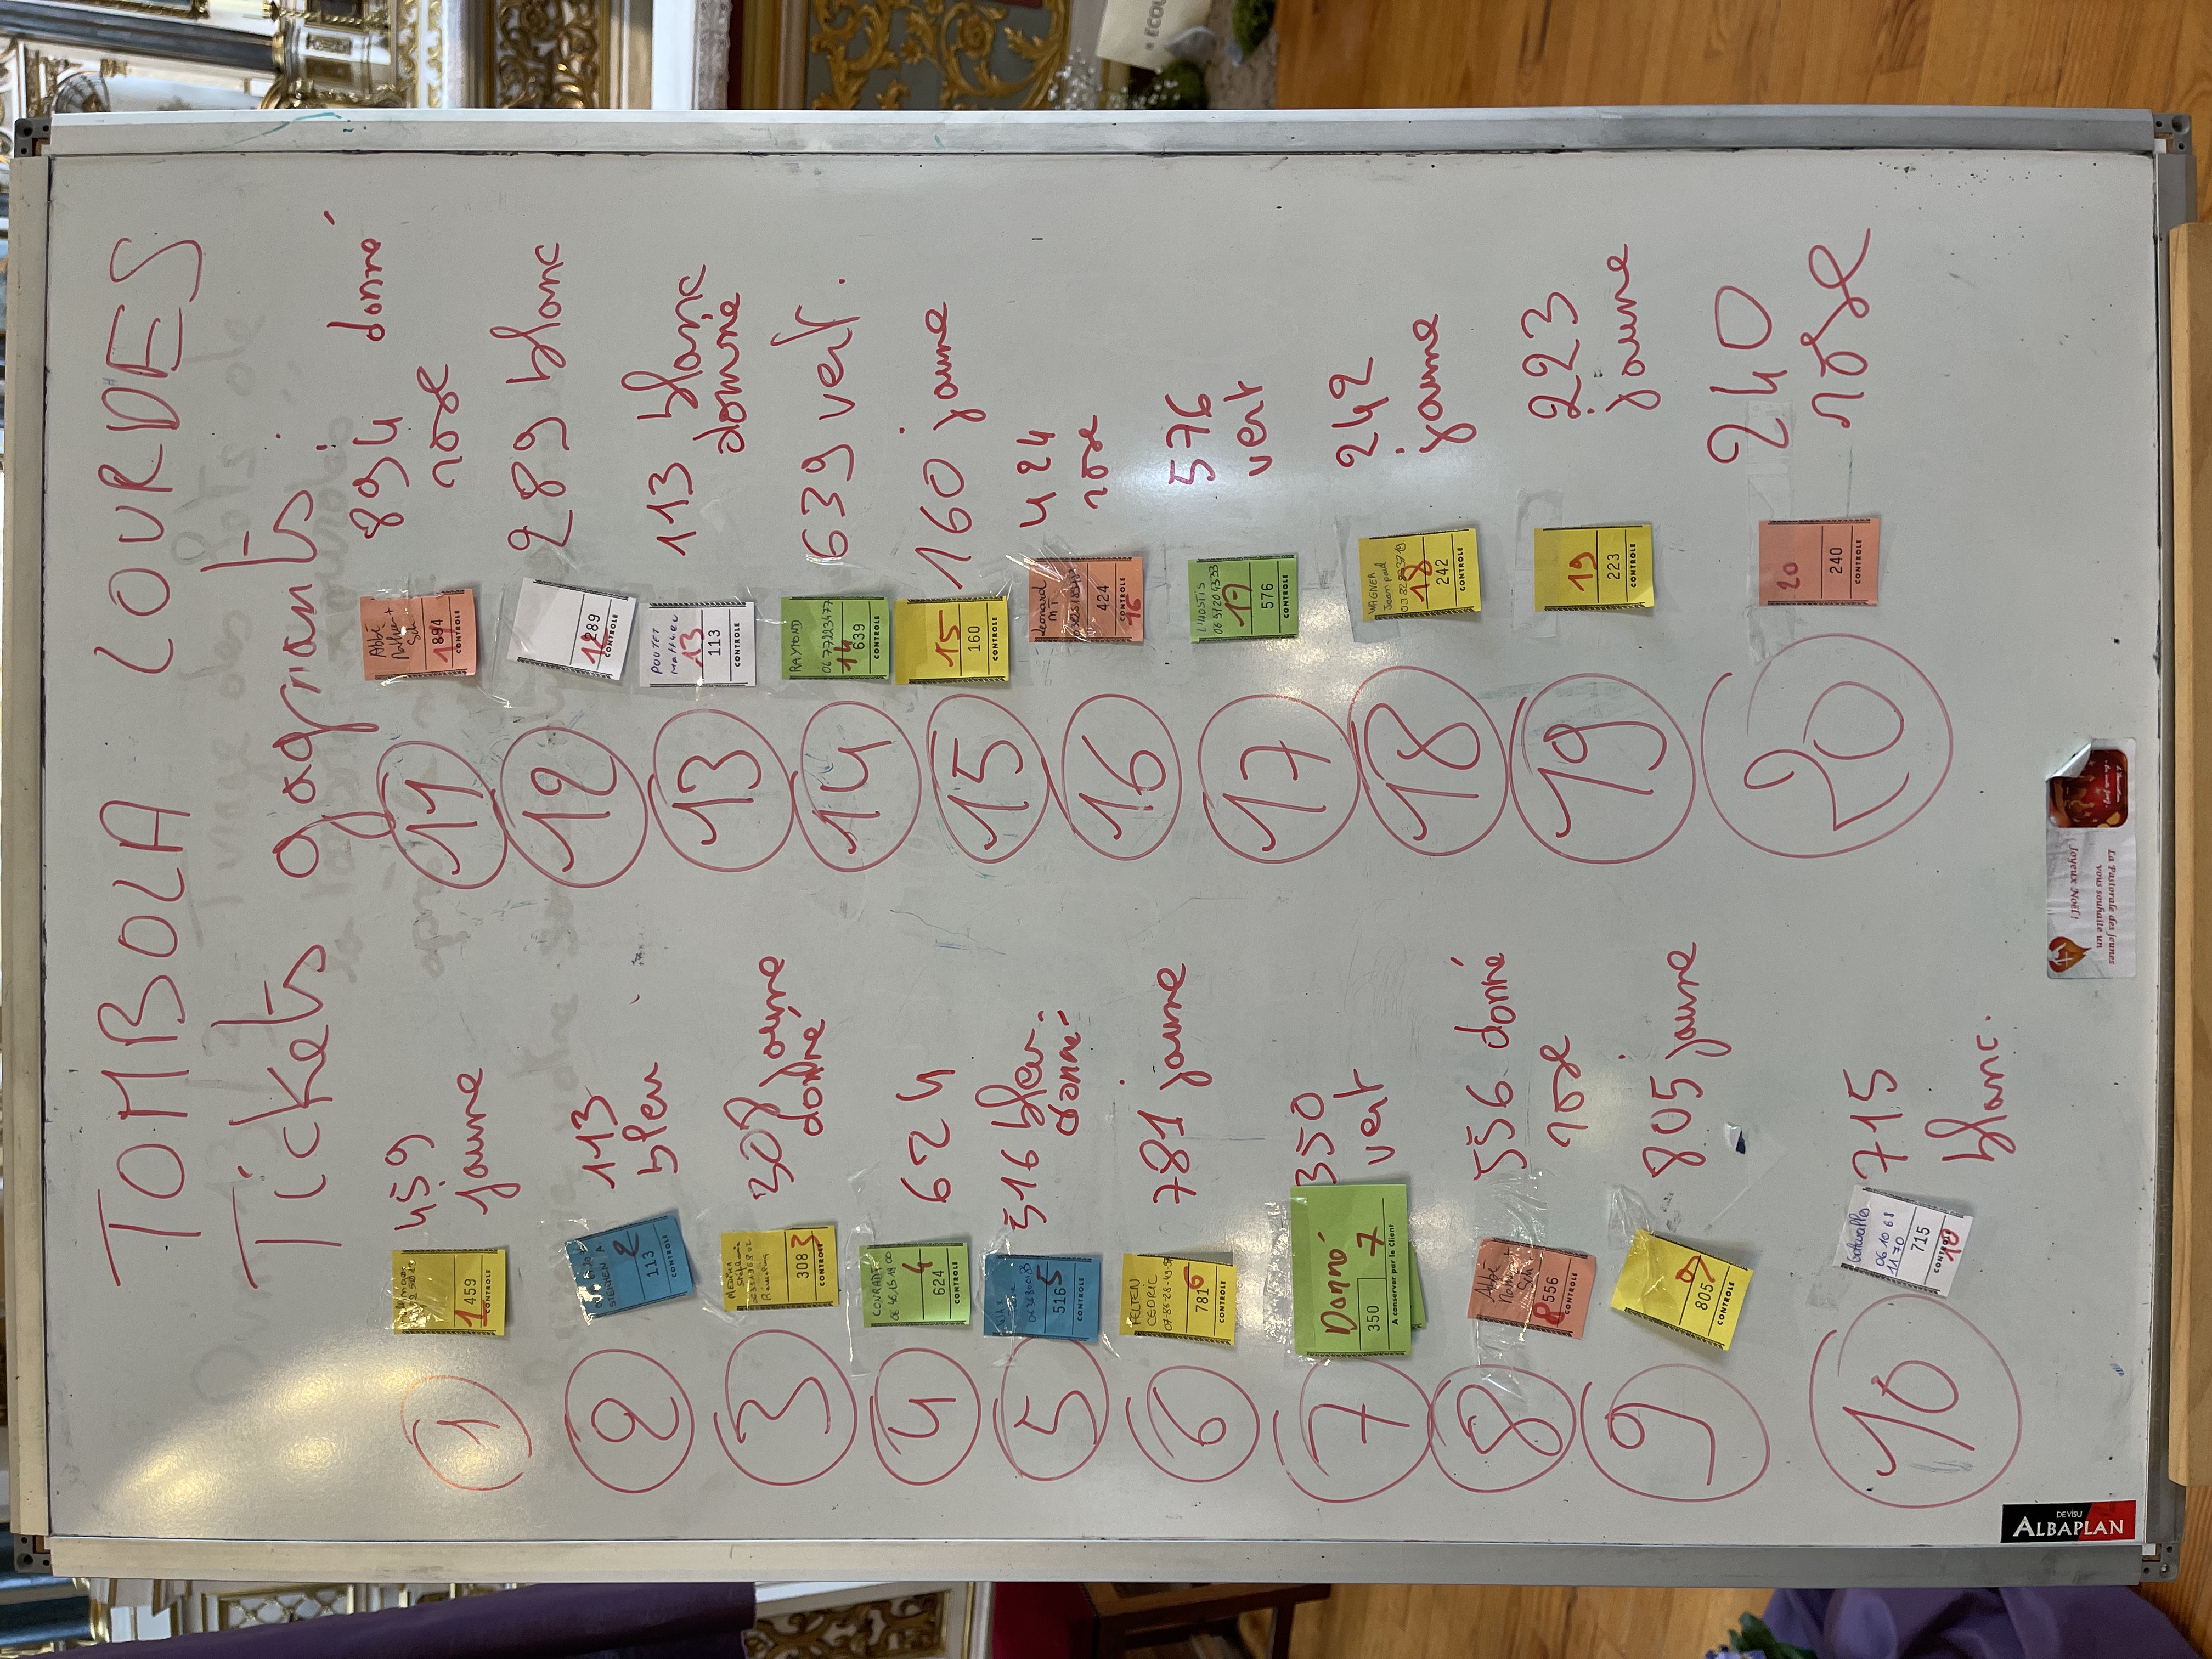 TOMBOLA LOURDES
Tickets gagnants
1
1 459
CONTROLE
459
jaune
2
2
113
CONTROLE
113
bleu
3
MEDINA
308 3
CONTROLE
308 jaune
donné
4
COURRANT
4
624
CONTROLE
624
5
516 5
CONTROLE
516 bleu
donné
6
FELTEN
CEDRIC
781 6
CONTROLE
781 jaune
7
Donné
350 7
A conserver par le Client
350
vert
8
Abbé
8 556
CONTROLE
556 donné
rose
9
805 9
CONTROLE
805 jaune
10
06 10 68
11 70
715
CONTROLE
10
715
blanc.
11
Abbé
11
894
CONTROLE
894 donné
rose
12
12
289
CONTROLE
289 blanc
13
POUTET
mathieu
13
113
CONTROLE
113 blanc
donné
14
RAYMOND
0677223477
14
639
CONTROLE
639 vert.
15
15
160
CONTROLE
160 jaune
16
Leonard
424
CONTROLE
16
424
rose
17
17
576
CONTROLE
576
vert
18
WAGNER
Jean paul
18
242
CONTROLE
242
jaune
19
19
223
CONTROLE
223
jaune
20
20
240
CONTROLE
240
rose
La Pastorale des jeunes
vous souhaite un
Joyeux Noël !
DEVISU
ALBAPLAN